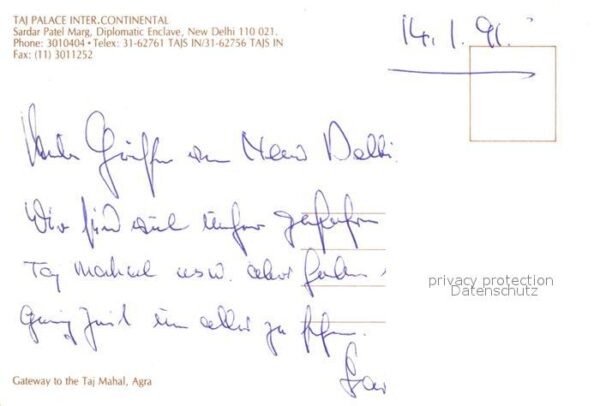 TAJ PALACE INTER.CONTINENTAL
Sardar Patel Marg, Diplomatic Enclave, New Delhi 110 021.
Phone: 3010404 • Telex: 31-62761 TAJS IN/31-62756 TAJS IN
Fax: (11) 3011252
14.1.91.
Grüße New Delhi.
Wir sind viel gefahren
Taj Mahal usw. aber haben
Zeit alles zu sehen.
privacy protection
Datenschutz
Gateway to the Taj Mahal, Agra